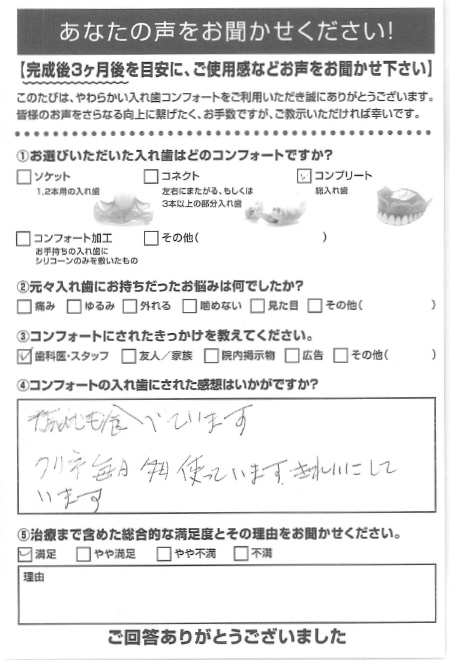 あなたの声をお聞かせください!
【完成後3ヶ月後を目安に、ご使用感などお声をお聞かせ下さい】
このたびは、やわらかい入れ歯コンフォートをご利用いただき誠にありがとうございます。
皆様のお声をさらなる向上に繋げたく、お手数ですが、ご教示いただければ幸いです。
①お選びいただいた入れ歯はどのコンフォートですか?
□ソケット □コネクト ☑コンプリート
1,2本用の入れ歯 左右にまたがる、もしくは 総入れ歯
3本以上の部分入れ歯
□コンフォート加工 □その他( )
お手持ちの入れ歯に
シリコーンのみを敷いたもの
②元々入れ歯にお持ちだったお悩みは何でしたか?
□痛み □ゆるみ □外れる □噛めない □見た目 □その他( )
③コンフォートにされたきっかけを教えてください。
☑歯科医・スタッフ □友人/家族 □院内掲示物 □広告 □その他( )
④コンフォートの入れ歯にされた感想はいかがですか?
も食べています
毎日 使っています きれいにして
います
⑤治療まで含めた総合的な満足度とその理由をお聞かせください。
☑満足 □やや満足 □やや不満 □不満
理由
ご回答ありがとうございました